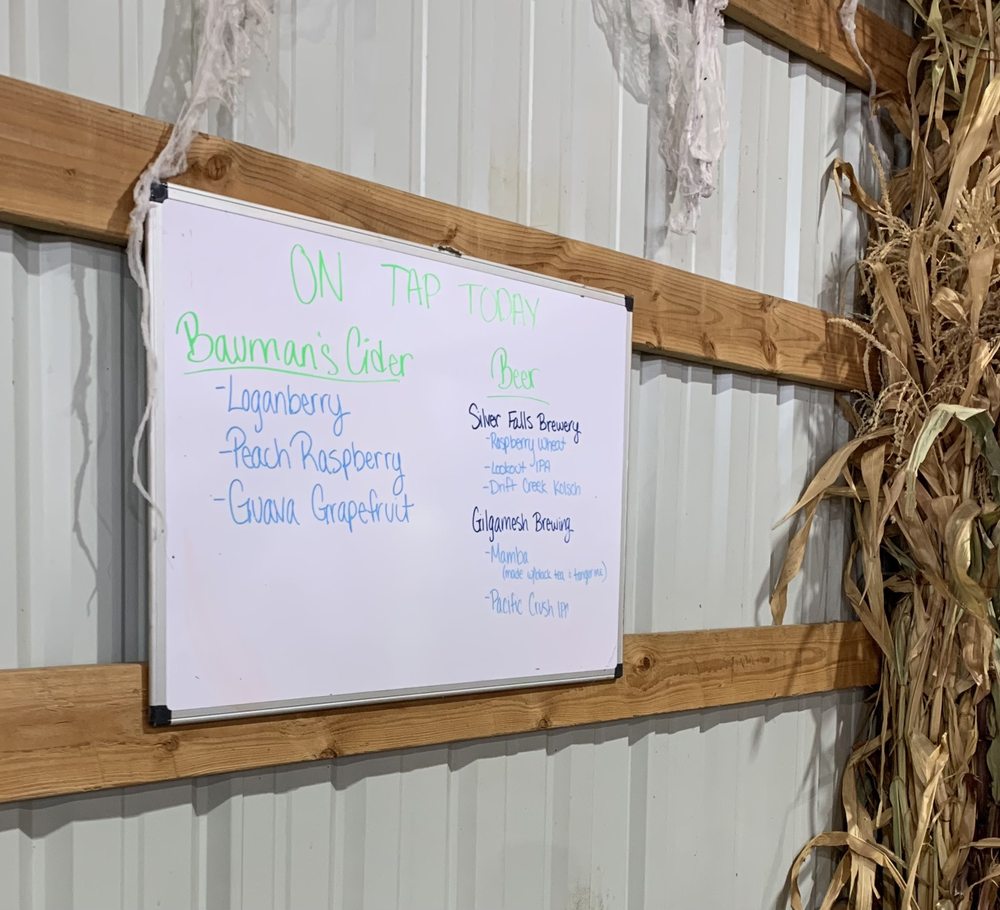 ON TAP TODAY
Bauman's Cider
-Loganberry
-Peach Raspberry
-Guava Grapefruit
Beer
Silver Falls Brewery
-Raspberry Wheat
-Lookout IPA
-Drift Creek Kolsch
Gilgamesh Brewing
-Mamba
(made w/black tea + tangerine)
-Pacific Crush IPA